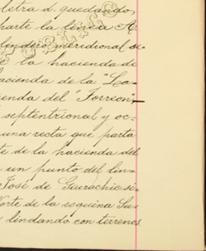 letra d. quedando
parte la linea A
lindero meridional de
e la hacienda de
acienda de la "La
enda del "Torreon"
septentrional y oc
una recta que parta
te de la hacienda del
un punto del lin
José de Guarachic se
Norte de la esquina Su
lindando con terrenos